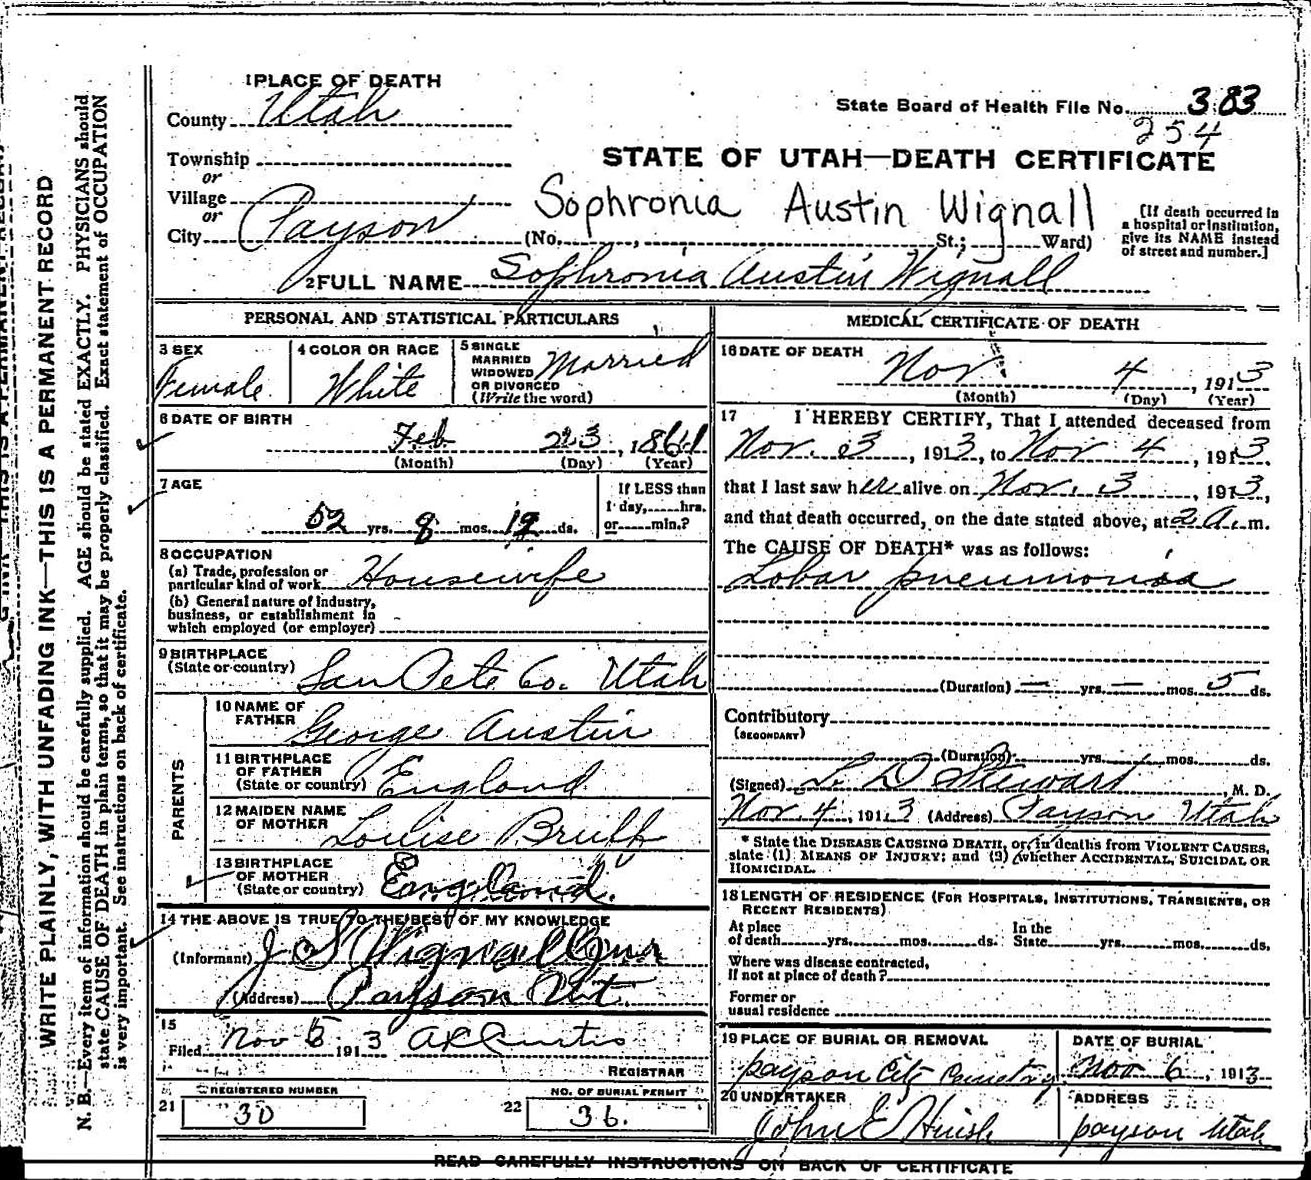 1 PLACE OF DEATH
County Utah
State Board of Health File No. 383
254
Township
or
Village
or
City Payson
STATE OF UTAH—DEATH CERTIFICATE
Sophronia Austin Wignall
(No. , St.; Ward)
[If death occurred in
a hospital or institution,
give its NAME instead
of street and number.]
2 FULL NAME Sophronia Austin Wignall
PERSONAL AND STATISTICAL PARTICULARS
3 SEX
Female
4 COLOR OR RACE
White
5 SINGLE
MARRIED
WIDOWED
OR DIVORCED
(Write the word)
Married
6 DATE OF BIRTH
Feb 23, 1861
(Month) (Day) (Year)
7 AGE
52 yrs. 8 mos. 12 ds.
If LESS than
1 day, hrs.
or min.?
8 OCCUPATION
(a) Trade, profession or
particular kind of work Housewife
(b) General nature of industry,
business, or establishment in
which employed (or employer)
9 BIRTHPLACE
(State or country) San Pete Co. Utah
PARENTS
10 NAME OF
FATHER George Austin
11 BIRTHPLACE
OF FATHER
(State or country) England
12 MAIDEN NAME
OF MOTHER Louise Bruff
13 BIRTHPLACE
OF MOTHER
(State or country) England.
14 THE ABOVE IS TRUE TO THE BEST OF MY KNOWLEDGE
(Informant) J S Wignall Jnr
(Address) Payson Ut.
15
Filed Nov 5 1913 A R Curtis
REGISTRAR
REGISTERED NUMBER
21 30
NO. OF BURIAL PERMIT
22 36.
MEDICAL CERTIFICATE OF DEATH
16 DATE OF DEATH
Nov 4, 1913
(Month) (Day) (Year)
17 I HEREBY CERTIFY, That I attended deceased from
Nov. 3, 1913, to Nov 4, 1913.
that I last saw her alive on Nov. 3, 1913,
and that death occurred, on the date stated above, at 2 A.m.
The CAUSE OF DEATH* was as follows:
Lobar pneumonia
(Duration) — yrs. — mos. 5 ds.
Contributory
(SECONDARY)
(Duration) yrs. mos. ds.
(Signed) L. D Stewart, M. D.
Nov. 4, 1913 (Address) Payson Utah
* State the DISEASE CAUSING DEATH, or, in deaths from VIOLENT CAUSES,
state (1) MEANS OF INJURY; and (2) whether ACCIDENTAL, SUICIDAL OR
HOMICIDAL.
18 LENGTH OF RESIDENCE (FOR HOSPITALS, INSTITUTIONS, TRANSIENTS, OR
RECENT RESIDENTS)
At place
of death yrs. mos. ds.
In the
State yrs. mos. ds.
Where was disease contracted,
if not at place of death?
Former or
usual residence
19 PLACE OF BURIAL OR REMOVAL
payson City Cemetry
DATE OF BURIAL
Nov 6, 1913
20 UNDERTAKER
John E Huish
ADDRESS
payson Utah
READ CAREFULLY INSTRUCTIONS ON BACK OF CERTIFICATE
WRITE PLAINLY, WITH UNFADING INK—THIS IS A PERMANENT RECORD
N. B.—Every item of information should be carefully supplied. AGE should be stated EXACTLY. PHYSICIANS should
state CAUSE OF DEATH in plain terms, so that it may be properly classified. Exact statement of OCCUPATION
is very important. See instructions on back of certificate.